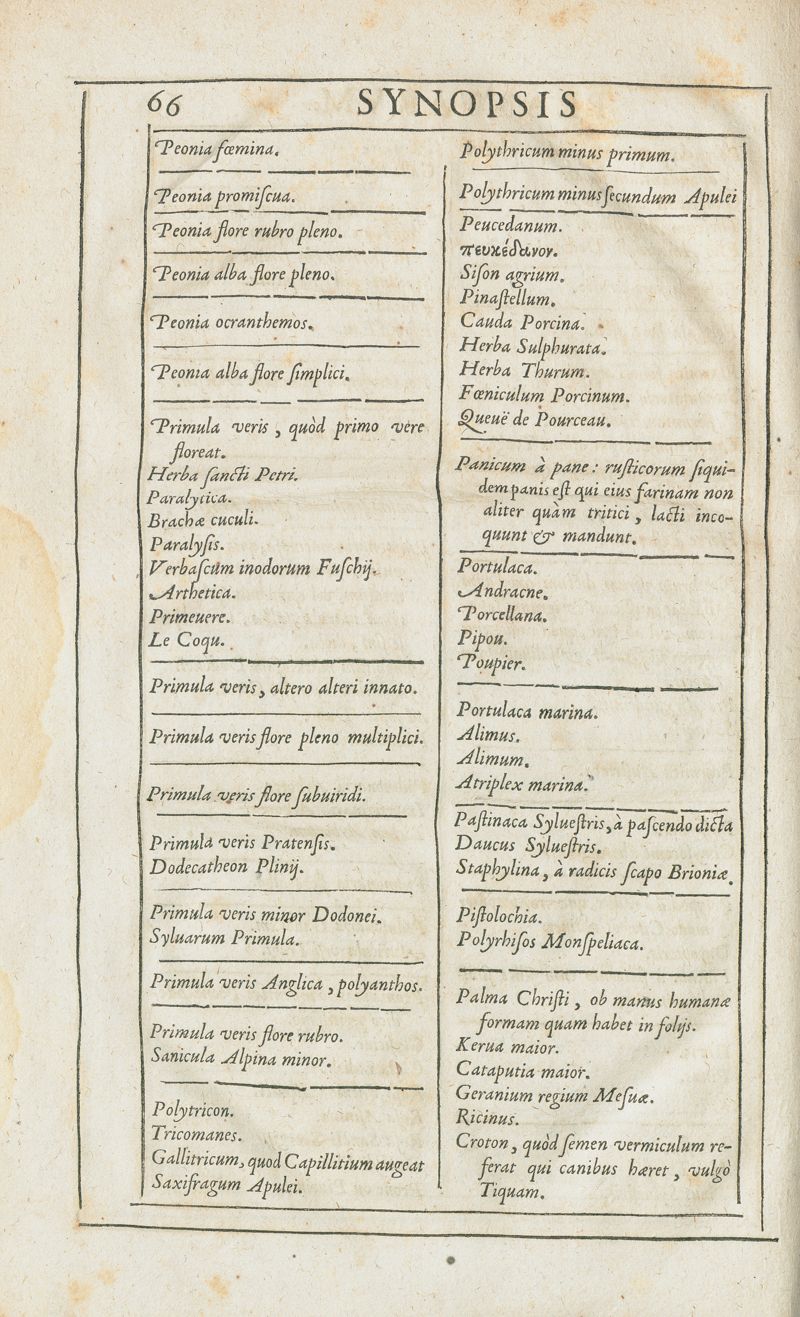 66 SYNOPSIS
Peonia fœmina.
Peonia promiſcua.
Peonia flore rubro pleno.
Peonia alba flore pleno.
Peonia ocranthemos.
Peonia alba flore ſimplici.
Primula veris, quòd primo vere
floreat.
Herba ſancti Petri.
Paralytica.
Brachæ cuculi.
Paralyſis.
Verbaſcum inodorum Fuſchij.
Arthetica.
Primeuere.
Le Coqu.
Primula veris, altero alteri innato.
Primula veris flore pleno multiplici.
Primula veris flore ſubuiridi.
Primula veris Pratenſis.
Dodecatheon Plinij.
Primula veris minor Dodonei.
Syluarum Primula.
Primula veris Anglica, polyanthos.
Primula veris flore rubro.
Sanicula Alpina minor.
Polytricon.
Tricomanes.
Gallitricum, quod Capillitium augeat
Saxifragum Apulei.
Polythricum minus primum.
Polythricum minus ſecundum Apulei
Peucedanum.
πευκέδανον.
Siſon agrium.
Pinaſtellum.
Cauda Porcina.
Herba Sulphurata.
Herba Thurum.
Fœniculum Porcinum.
Queuë de Pourceau.
Panicum à pane: ruſticorum ſiqui-
dem panis eſt qui eius farinam non
aliter quàm tritici, lacti inco-
quunt & mandunt.
Portulaca.
Andracne.
Porcellana.
Pipou.
Poupier.
Portulaca marina.
Alimus.
Alimum.
Atriplex marina.
Paſtinaca Sylueſtris, à paſcendo dicta
Daucus Sylueſtris.
Staphylina, à radicis ſcapo Brioniæ.
Piſtolochia.
Polyrhiſos Monſpeliaca.
Palma Chriſti, ob manus humanæ
formam quam habet in folijs.
Kerua maior.
Cataputia maior.
Geranium regium Meſuæ.
Ricinus.
Croton, quòd ſemen vermiculum re-
ferat qui canibus hæret, vulgò
Tiquam.